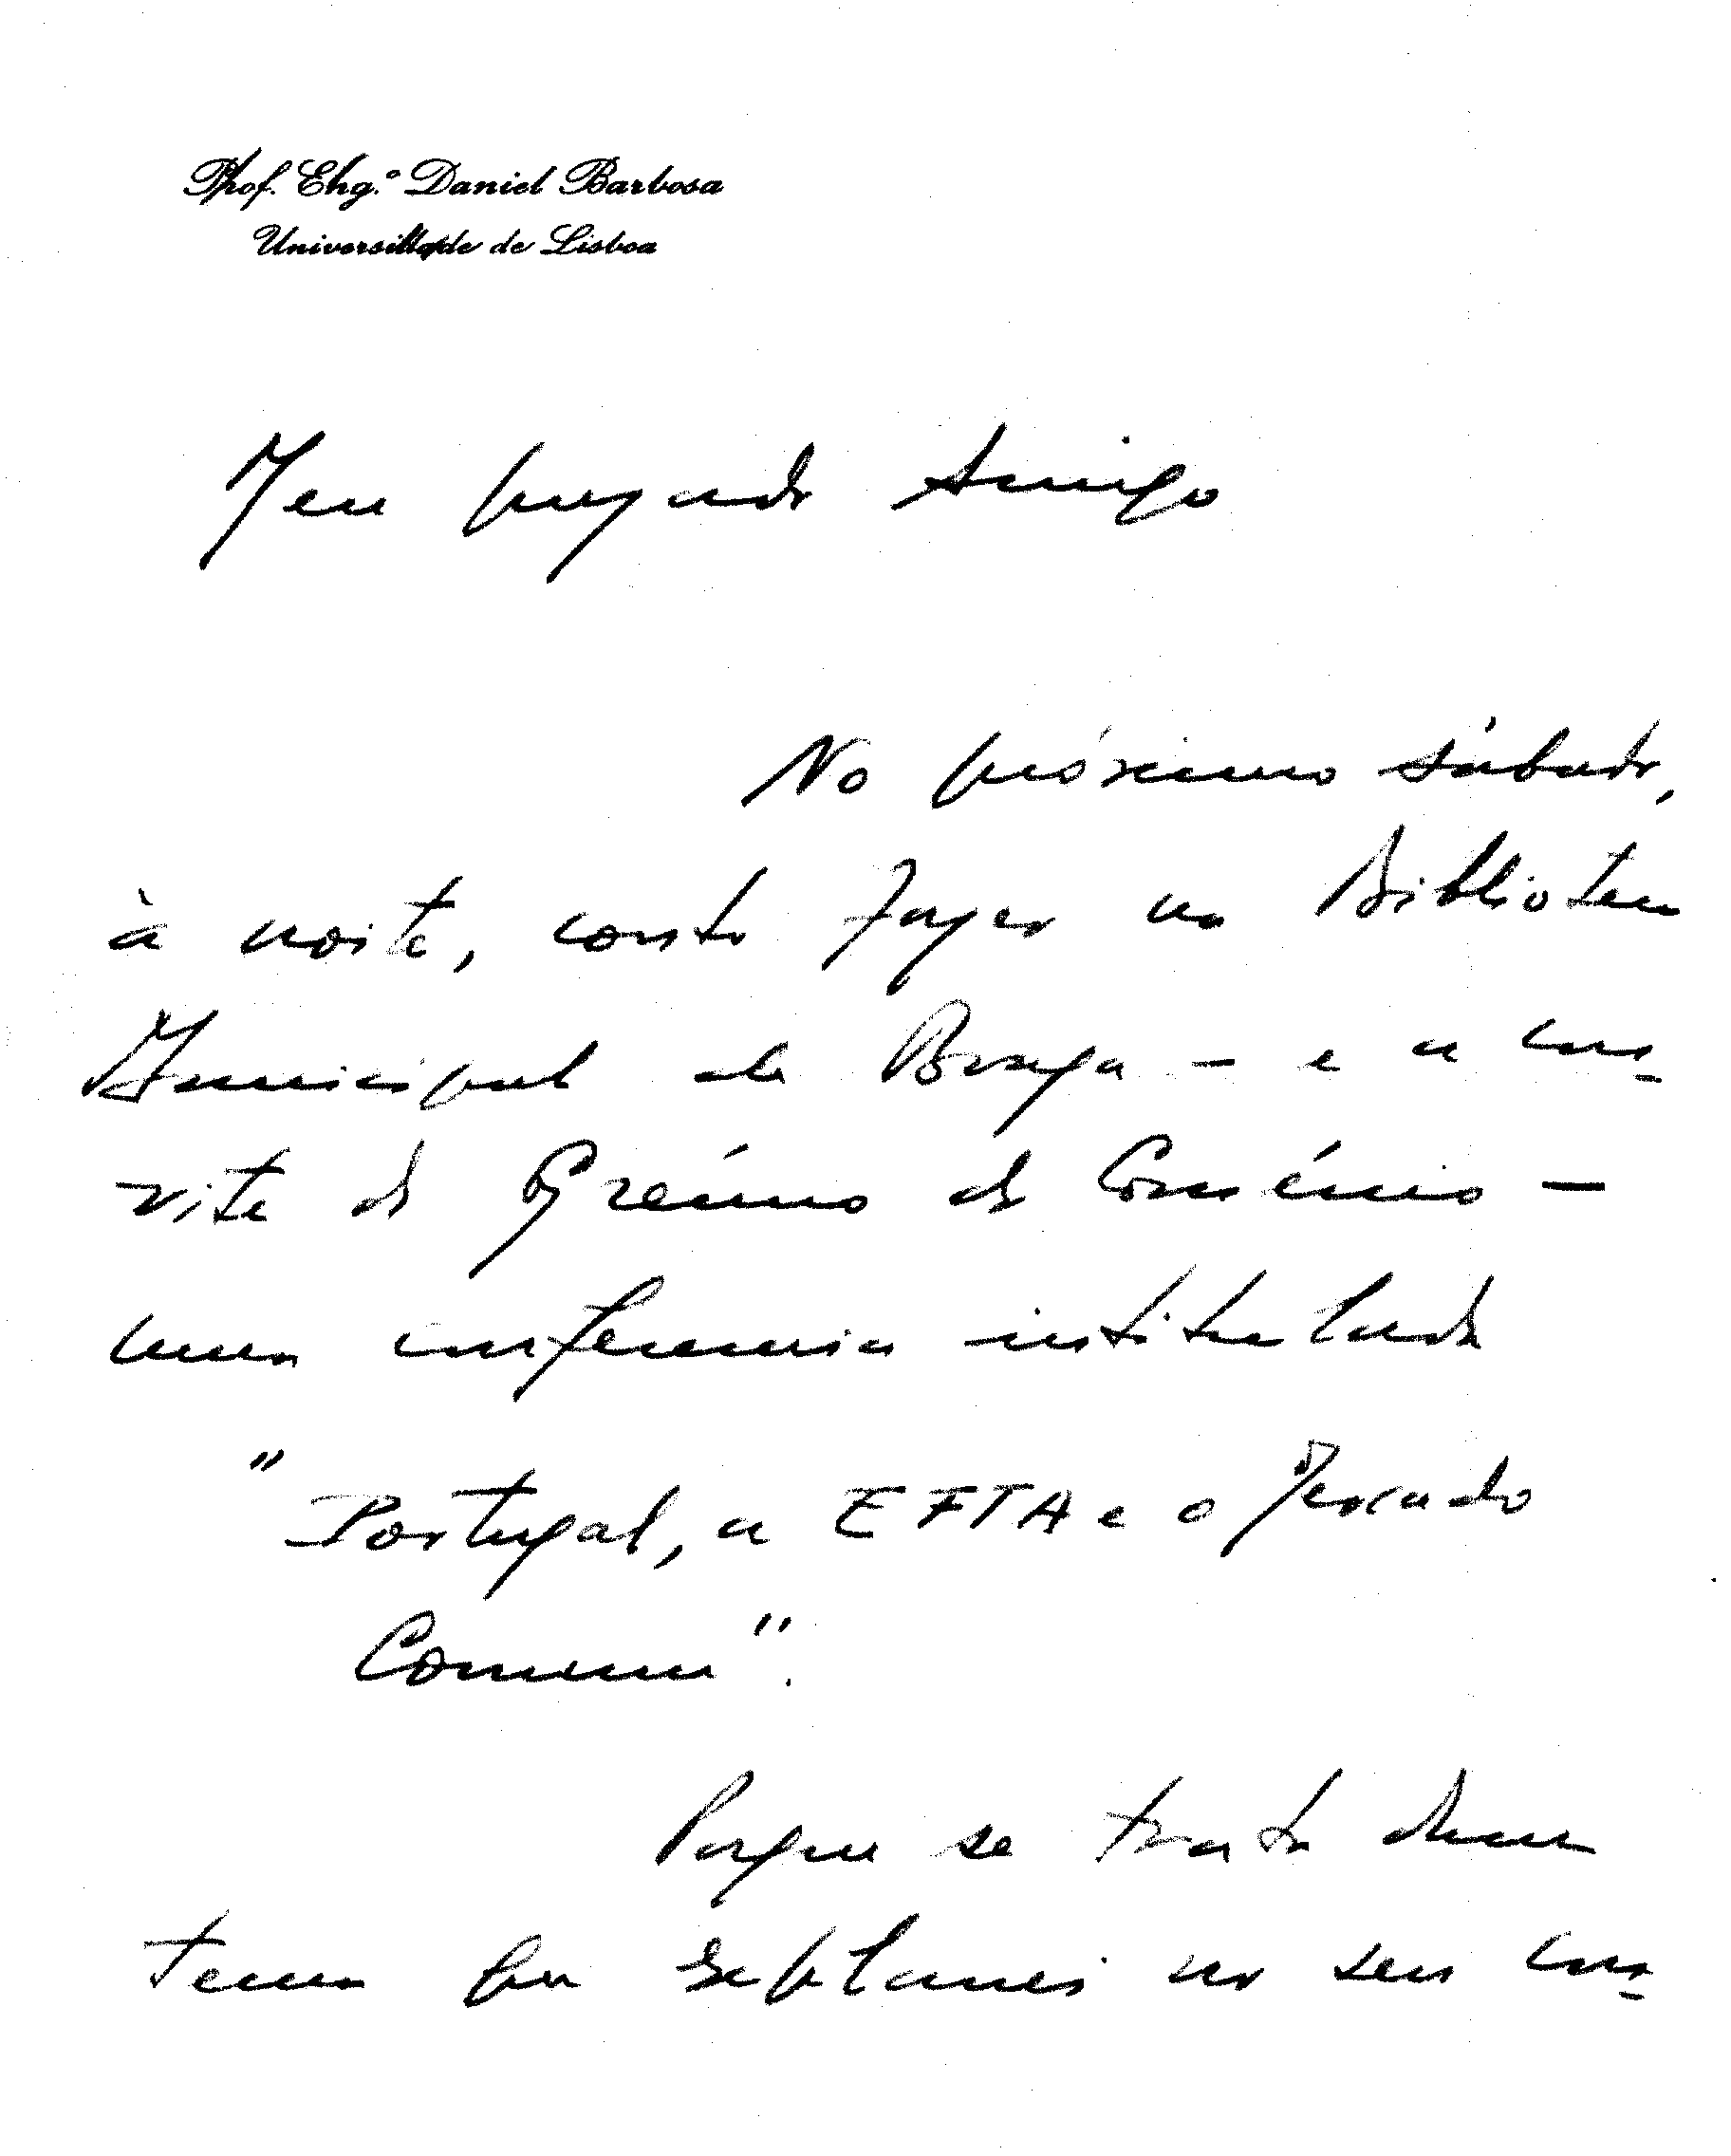 Prof. Eng.º Daniel Barbosa
Universidade de Lisboa
Meu prezado Amigo
No próximo sábado,
à noite, conto fazer na Biblioteca
Municipal de Braga - e a con-
vite do Grémio do Comércio -
uma conferencia intitulada
"Portugal, a EFTA e o Mercado
Comum".
Porque se trata dum
tema que explanei no seu con-